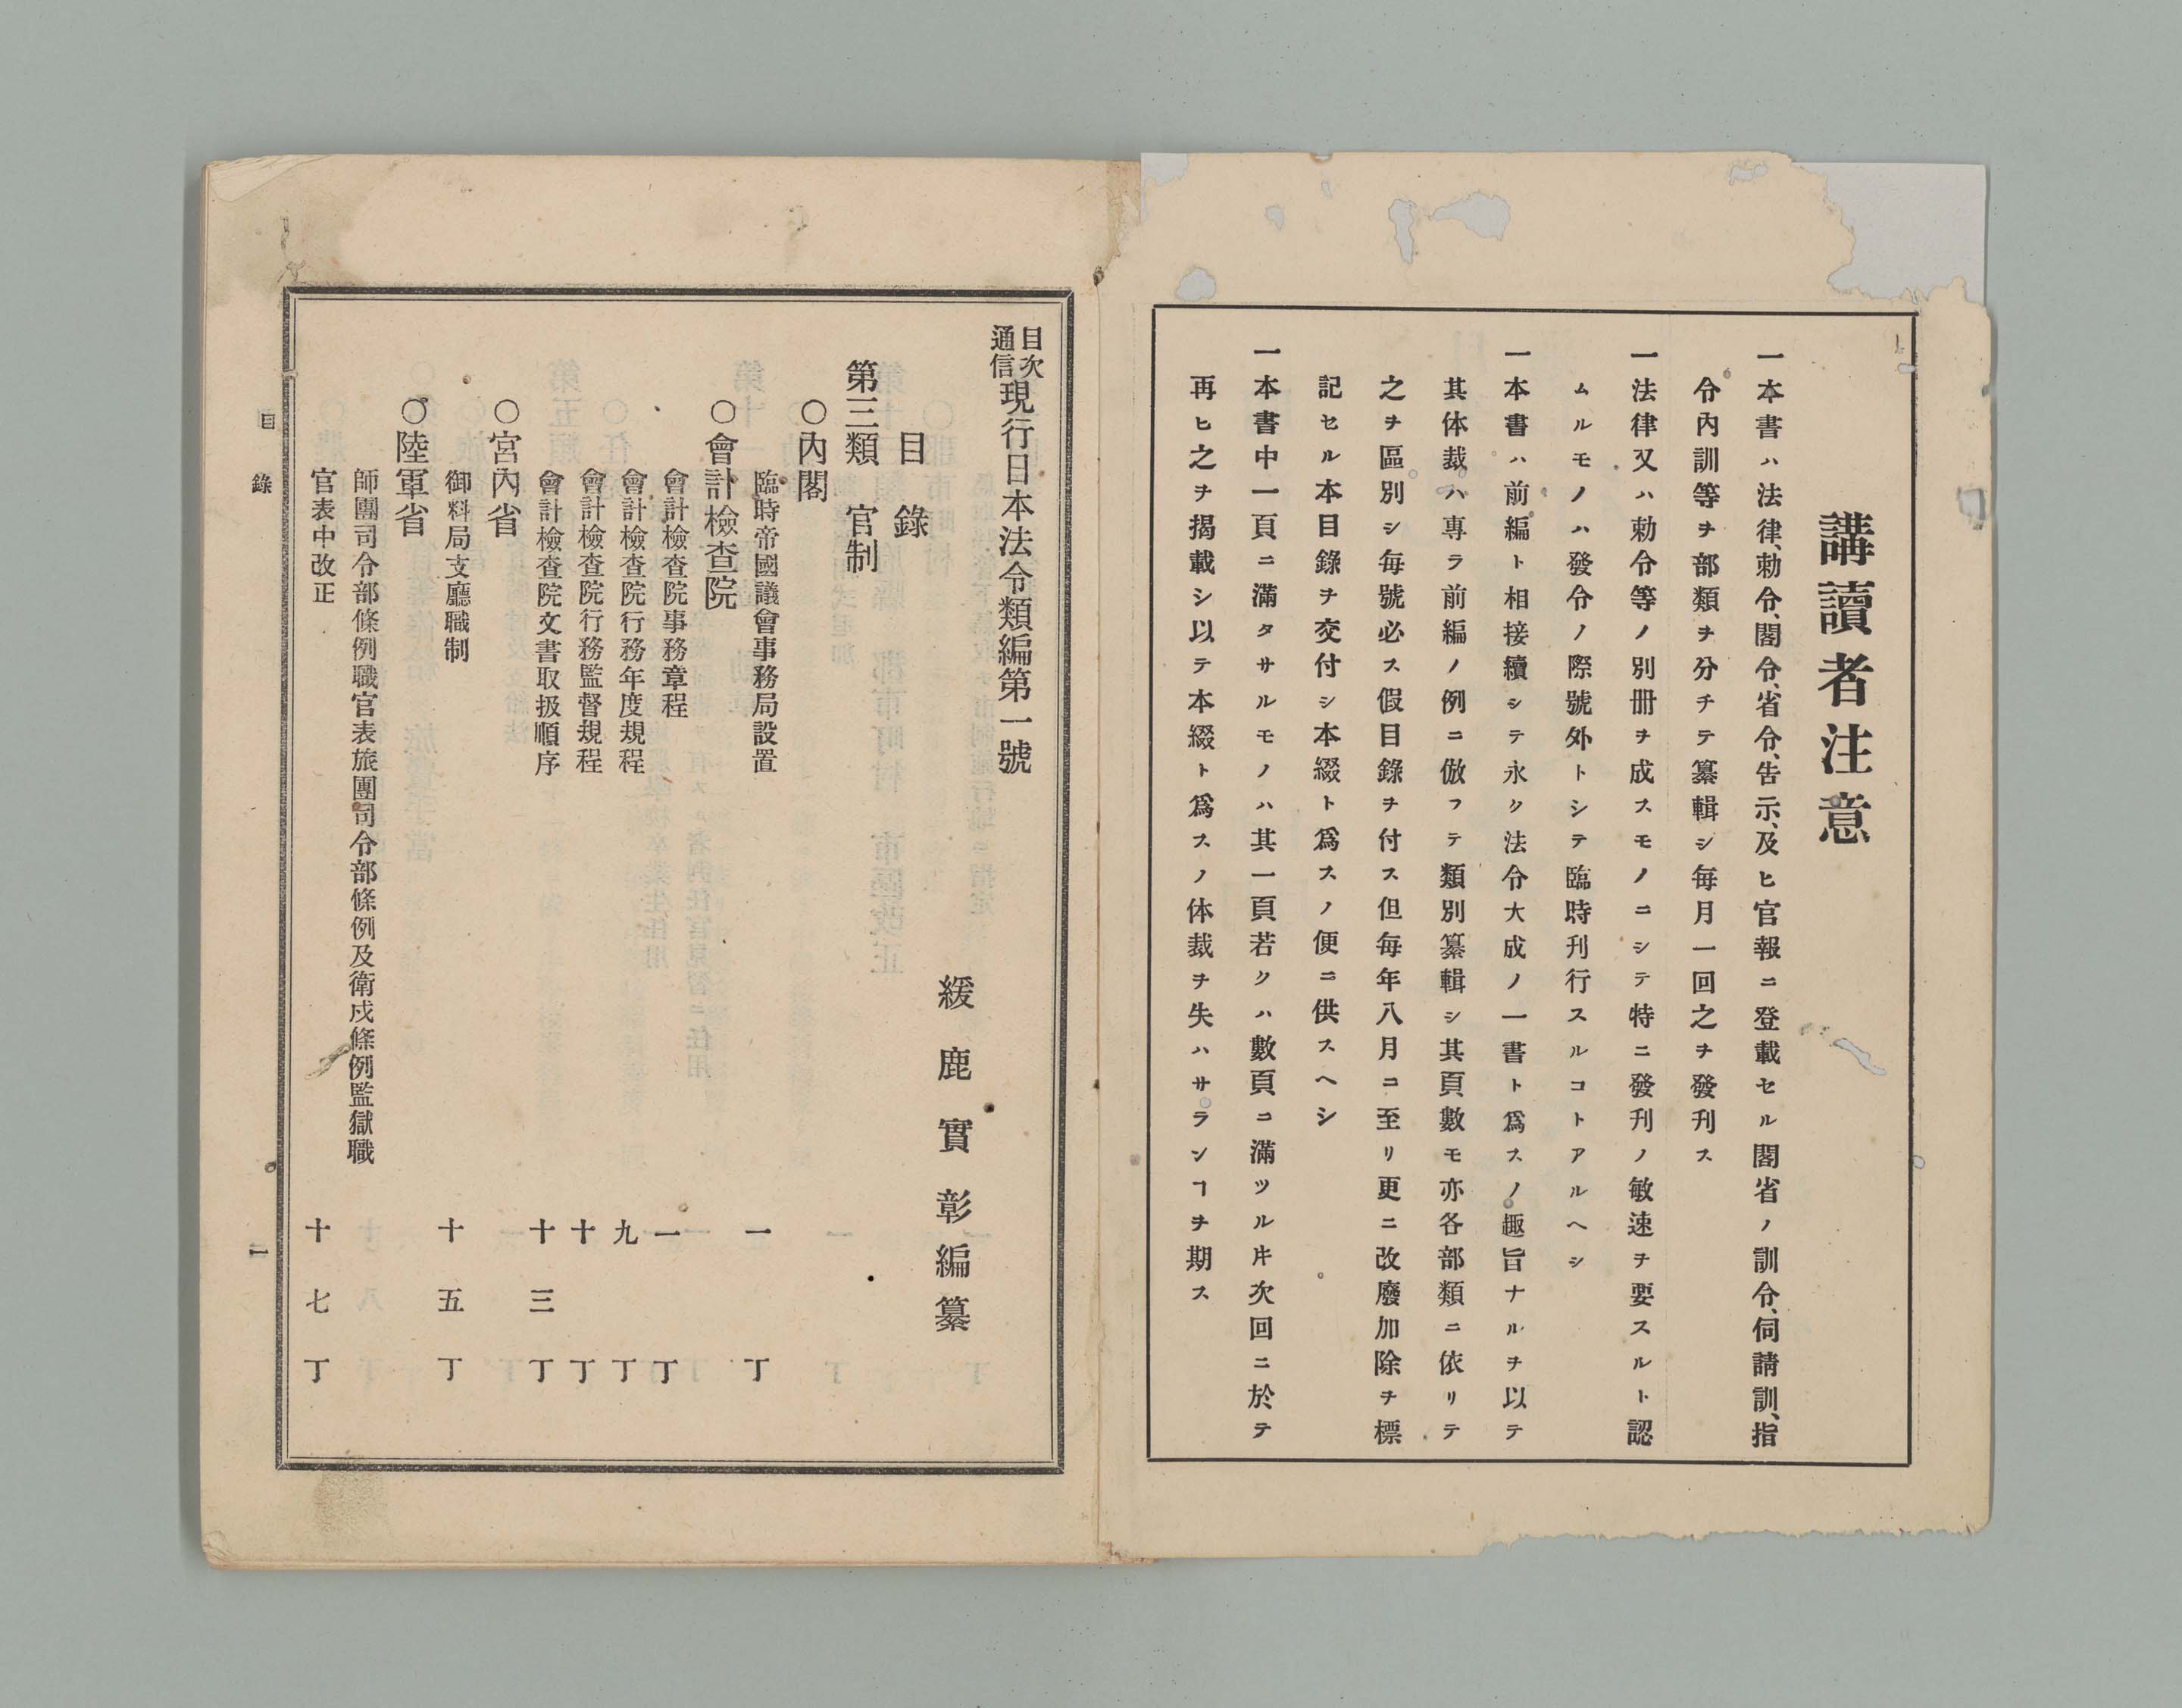 講讀者注意
一本書ハ法律、勅令、閣令、省令、告示、及ヒ官報ニ登載セル閣省ノ訓令、伺請訓、指
令內訓等ヲ部類ヲ分チテ纂輯シ每月一回之ヲ發刊ス
一法律又ハ勅令等ノ別冊ヲ成スモノニシテ特ニ發刊ノ敏速ヲ要スルト認
ムルモノハ發令ノ際號外トシテ臨時刊行スルコトアルヘシ
一本書ハ前編ト相接續シテ永ク法令大成ノ一書ト爲スノ趣旨ナルヲ以テ
其体裁ハ專ラ前編ノ例ニ倣フテ類別纂輯シ其頁數モ亦各部類ニ依リテ
之ヲ區別シ每號必ス假目錄ヲ付ス但每年八月ニ至リ更ニ改廢加除ヲ標
記セル本目錄ヲ交付シ本綴ト爲スノ便ニ供スヘシ
一本書中一頁ニ滿タサルモノハ其一頁若クハ數頁ニ滿ツルヰ次回ニ於テ
再ヒ之ヲ揭載シ以テ本綴ト爲スノ体裁ヲ失ハサランヿヲ期ス
目次
通信
現行日本法令類編第一號
緩鹿實彰編纂
目錄
第三類　官制
○內閣
臨時帝國議會事務局設置　一丁
○會計檢查院
會計檢查院事務章程　一丁
會計檢查院行務年度規程　九丁
會計檢查院行務監督規程　十丁
會計檢查院文書取扱順序　十三丁
○宮內省
御料局支廳職制　十五丁
○陸軍省
師團司令部條例職官表旅團司令部條例及衛戍條例監獄職
官表中改正　十七丁
目錄　一